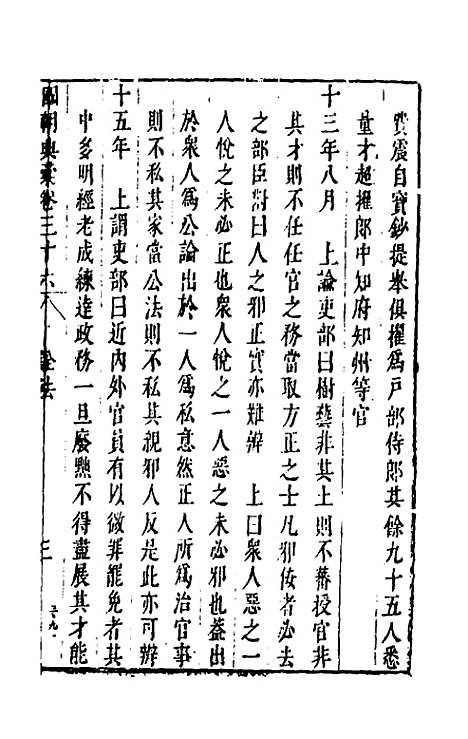 賈震自寶鈔提舉俱擢爲戸部侍郎其餘九十五人悉
童才超擢郎中知府知州等官
十三年八月　上諭吏部曰樹藝非其土則不蕃授官非
其才則不任任官之務當取方正之士凡邪佞者必去
之部臣對曰人之邪正實亦難辨　上曰衆人惡之一
人悅之未必正也衆人悅之一人惡之未必邪也蓋出
於衆人爲公論出於一人爲私意然正人所爲治官事
則不私其家當公法則不私其親邪人反是此亦可辨
十五年　上謂吏部曰近內外官員有以微罪罷免者其
中多明經老成練達政務一旦廢黜不得盡展其才能
國朝典彙卷三十六
三